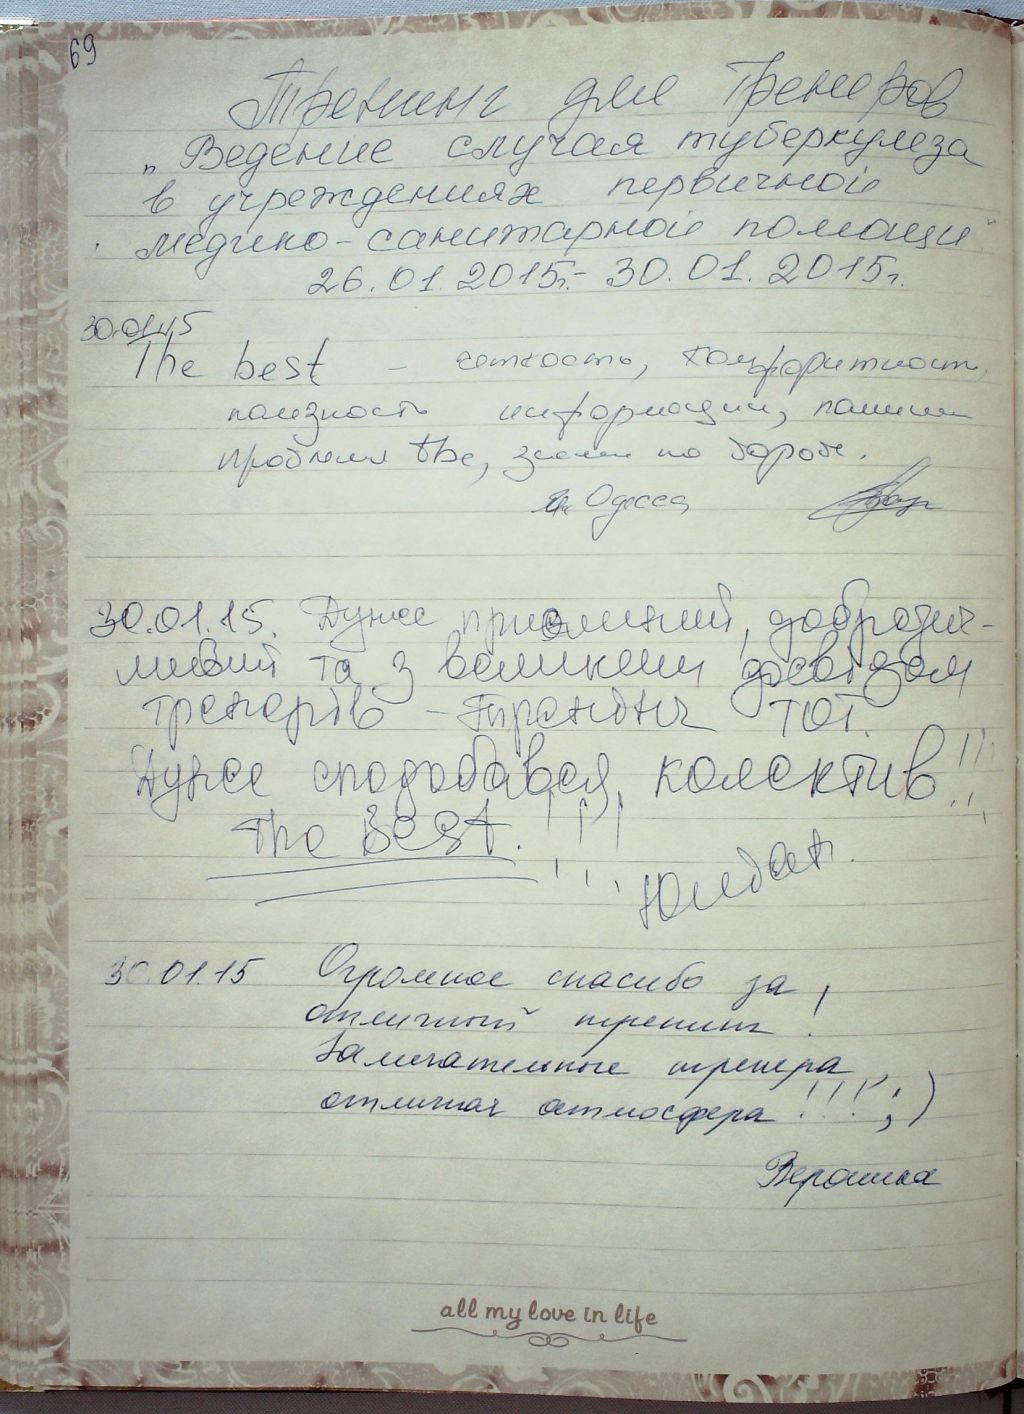 69
Тренинг для тренеров
"Ведение случая туберкулеза
в учреждениях первичной
медико-санитарной помощи"
26.01.2015г.- 30.01.2015г.
30.01.15
The best - четкость, комфортность,
полезность информации,
проблем tbc,
г. Одесса
30.01.15. Дуже приємний, доброзич-
ливий та з великим досвідом
тренерів - Тренінг ТОТ.
Дуже сподобався колектив!!!
The BEST.!!!
30.01.15 Огромное спасибо за
отличный тренинг!
Замечательные тренера,
отличная атмосфера!!! ;)
Вероника
all my love in life